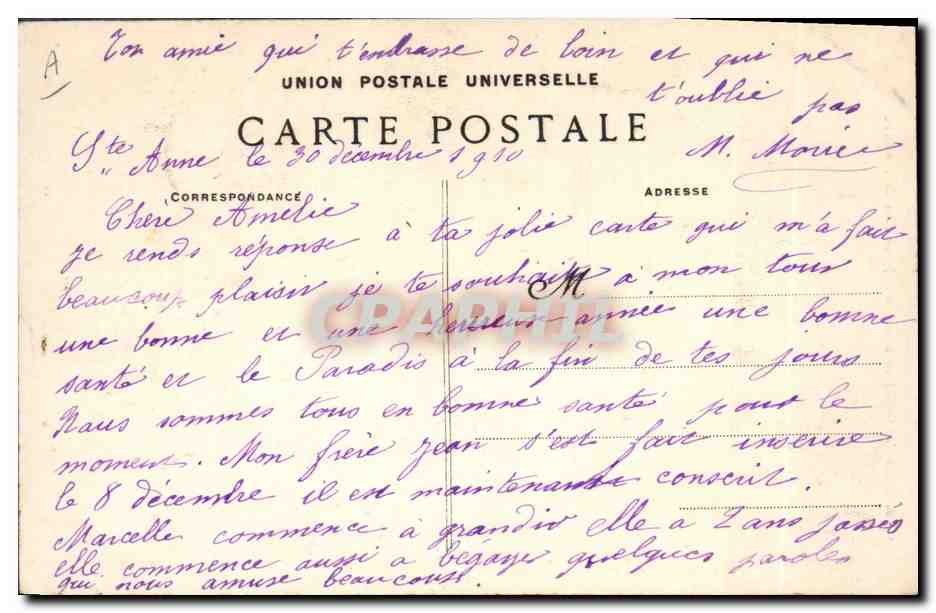 A
Ton amie qui t'embrasse de loin et qui ne
UNION POSTALE UNIVERSELLE
t'oublie pas
CARTE POSTALE
Ste Anne le 30 décembre 1910
M. Morice
CORRESPONDANCE
ADRESSE
Chère Amélie
je rends réponse à ta jolie carte qui m'a fait
beaucoup plaisir je te souhaite à mon tour
M
CPAPHIL
une bonne et une heureuse année une bonne
santé et le Paradis à la fin de tes jours
Nous sommes tous en bonne santé pour le
moment. Mon frère Jean s'est fait inscrire
le 8 décembre il est maintenant conscrit.
Marcelle commence à grandir elle a 2 ans passés
elle commence aussi a begayer quelques paroles
qui nous amuse beaucoup.